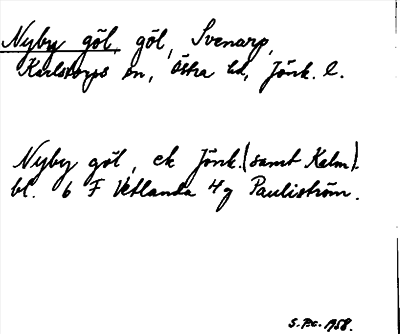 Nyby göl, göl, Svenarp,
Karlstorps sn, Östra hd, Jönk. l.
Nyby göl, ek Jönk. (samt Kalm).
bl. 6 F Vetlanda 4g Pauliström.
S. P.C. 1958.